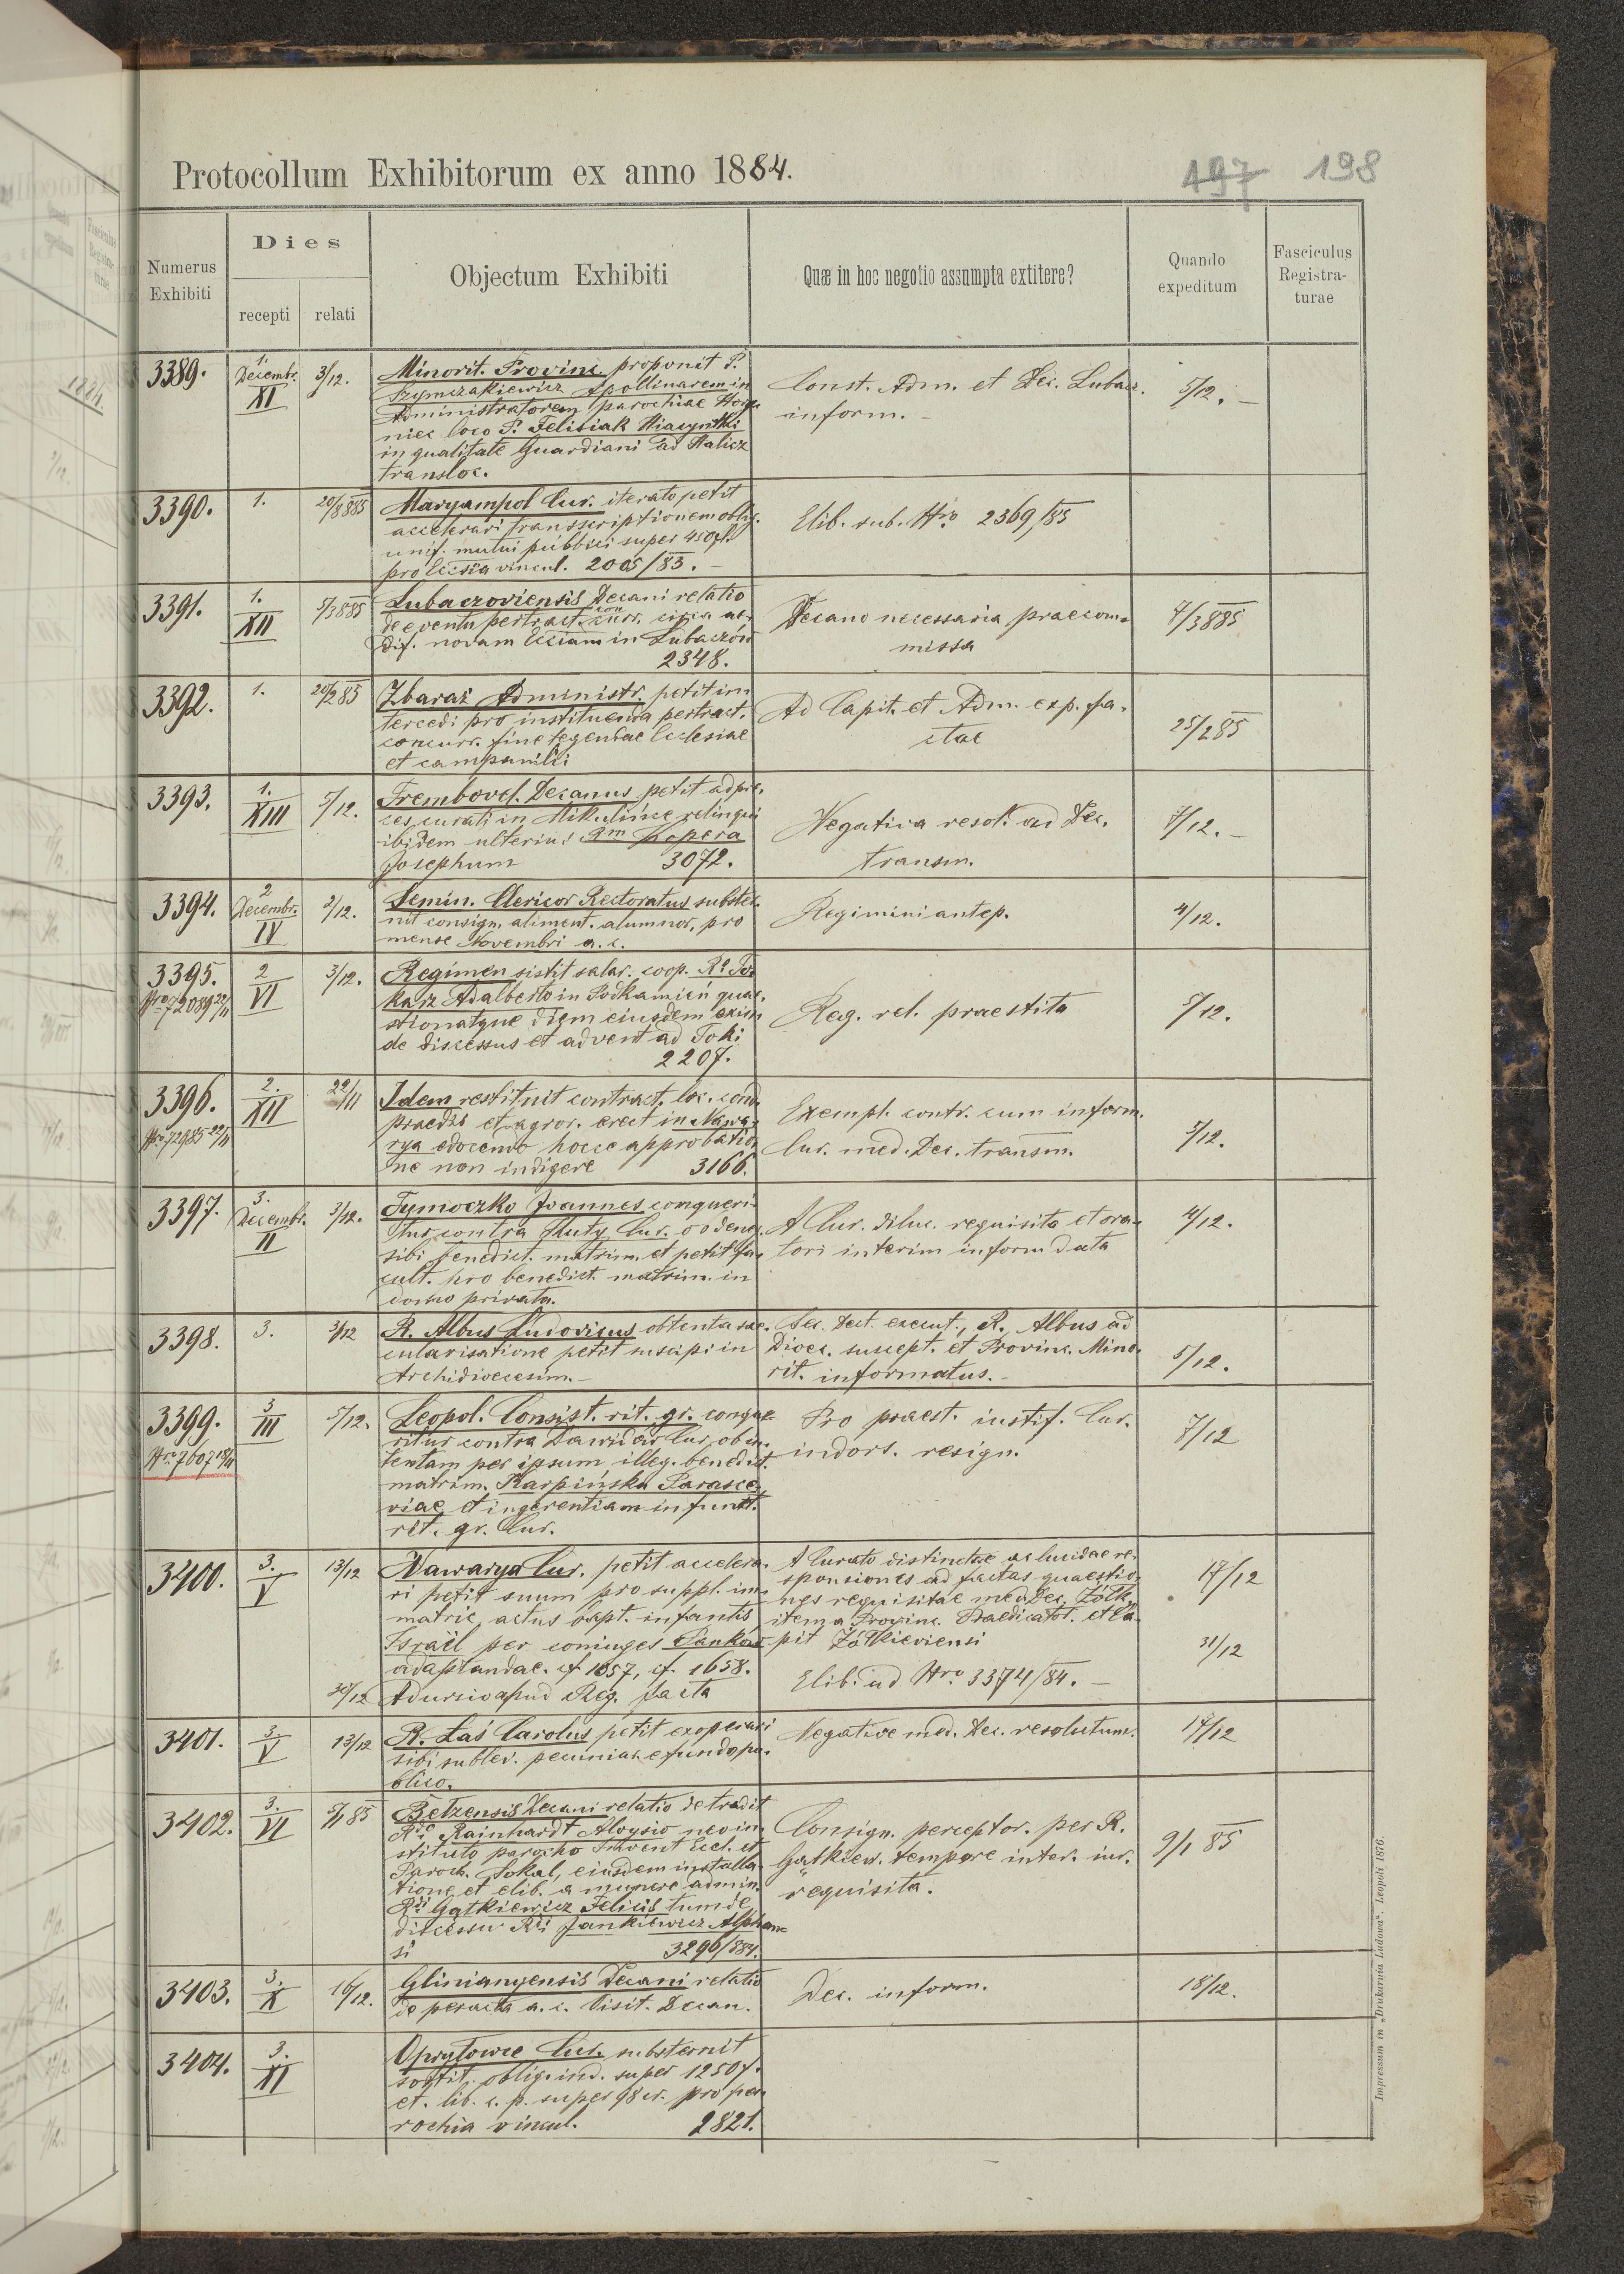 Protocollum Exhibitorum ex anno 1884.
197 198
Numerus Exhibiti
Dies
recepti
relati
Objectum Exhibiti
Quæ in hoc negotio assumpta extitere?
Quando expeditum
Fasciculus Registra-turae
3389.
1. Decembr. XI
3/12.
Minorit. Provinc. proponit P.
Szymczakiewicz Apollinarem in
Administratorem parochiae Hory-
niec loco P. Felisiak Hiacynthi
in qualitate Guardiani ad Halicz
transloc.
Const. Adm. et Dec. Lubacz.
inform. -
5/12. -
3390.
1.
20/8 885
Maryampol Cur. iterato petit
accelerari transscriptionem oblig.
unif. mutui publici super 450 fl.
pro Ecclsia vincul. 2005/83. -
Elib. sub. Nro 2369/85
3391.
1. XII
5/3 885
Lubaczoviensis Decani relatio
de eventu pertract. con
curr. circa ae-
dif. novam Ecciam in Lubaczów
2348.
Decano necessaria praecom-
missa
7/3 885
3392.
1.
20/2 85
Zbaraż Administr. petit in
tercedi pro instituenda pertract.
concurr. fine tegendae Ecclesiae
et campanilii
Ad Capit. et Adm. exp. fa-
ctae
25/2 85
3393.
1. XIII
5/12.
Trembovl. Decanus petit ad pre-
ces curati in Mikulińce relinqui
ibidem ulterius Rm Kopera
Josephum 3072.
Negativa resol. ad Dec.
transm.
7/12. -
3394.
2 Decembr. IV
2/12.
Semin. Clericor Rectoratus subster-
nit consign. aliment. alumnor. pro
mense Novembri a. c.
Regimini antep.
4/12.
3395.
Nro 72089 22/11
2 VI
3/12.
Regimen sistit salar. coop. Ro To-
karz Adalberto in Podkamień quae-
stionatque diem eiusdem exin
de discessus et advent ad Toki
2207.
Reg. rel. praestita
5/12.
3396.
Nro 72985 22/11
2. XII
22/11
Idem restituit contract. loc. cond.
praedii et agror. erect in Nawa-
rya edocendo hocce approbatio-
ne non indigere 3166.
Exempl. contr. cum inform.
Cur. med. Dec. transm.
5/12.
3397.
3. Decembr. II
3/12.
Tymoczko Joannes conqueri-
tur contra Huty Cur. ob deneg.
sibi benedict. matrim. et petit fa-
cult. pro benedict. matrim. in
domo privata.
A Cur. diluc. requisita et ora-
tori interim inform data
4/12.
3398.
3.
3/12
R. Albus Ludovicus obtenta sae-
cularisatione petit suscipi in
Archidioecesim. -
Sec. Dect. execut., R. Albus ad
Dioec. suscept. et Provinc. Mino-
rit. informatus. -
5/12.
3399.
Nro 7607 18/11
3 III
5/12.
Leopol. Consist. rit. gr. conque-
ritur contra Dawidów Cur. ob in-
tentam per ipsum illeg. benedict.
matrim. Karpińska Parasce-
viae et ingerentiam in funct.
rit. gr. Cur.
Pro praest. iustif. Cur.
indors. resign.
7/12
3400.
3. V
13/12
Nawarya Cur. petit accelera-
ri petit suum pro suppl. im-
matric. actus bapt. infantis
Israël per coniuges Pańków
adaptandae. cf 1057, cf. 1658.
30/12 Ad ursio apud Reg. facta
A Curato distinctae ac lucidae re-
sponsiones ad factas quaestio-
nes requisitae med Dec. Żółk.
item a Provinc. Praedicator. et Ca-
pit Żółkieviensi
Elib. ad Nro 3374/84. -
17/12
31/12
3401.
3. V
13/12
R. Łaś Carolus petit exoperari
sibi sublev. pecuniar. e fundo pu-
blico.
Negative med. Dec. resolutum.
17/12
3402.
3. VI
5/1 85
Betzensis Decani relatio de tradit
Rdo Rainhardt Aloysio neo in-
stituto parocho Invent Eccl. et
Paroch. Sokal, eiusdem installa-
tione et elib. a munere admin.
Rdi Gątkiewicz Felicis tum de
discessu Rdi Jankiewicz Alphon-
si 3296/884.
Consign. perceptor. per R.
Gątkiew. tempore inter. iur.
requisita.
9/1 85
3403.
3. X
16/12.
Glinianyensis Decani relatio
de peracta a. c. Visit. Decan.
Dec. inform.
18/12.
3404.
3. XI
Opryłowce Cur. substernit
sortit. oblig. ind. super 1250 f.
et. lib. c. p. super 98 cr. pro pa-
rochia vincul. 2821.
Impressum in „Drukarnia Ludowa". Leopoli 1876.